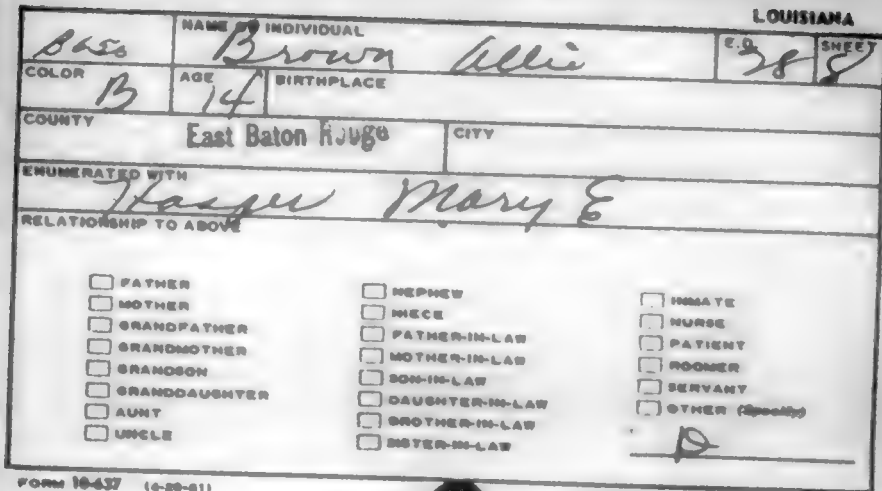 LOUISIANA
NAME OF INDIVIDUAL E.D. SHEET
B650 Brown Allie 28 8
COLOR AGE BIRTHPLACE
B 14
COUNTY CITY
East Baton Rouge
ENUMERATED WITH
Mary E
RELATIONSHIP TO ABOVE
FATHER
MOTHER
GRANDFATHER
GRANDMOTHER
GRANDSON
GRANDDAUGHTER
AUNT
UNCLE
NEPHEW
NIECE
FATHER-IN-LAW
MOTHER-IN-LAW
SON-IN-LAW
DAUGHTER-IN-LAW
BROTHER-IN-LAW
SISTER-IN-LAW
INMATE
NURSE
PATIENT
ROOMER
SERVANT
OTHER (Specify)
D
FORM 10-637